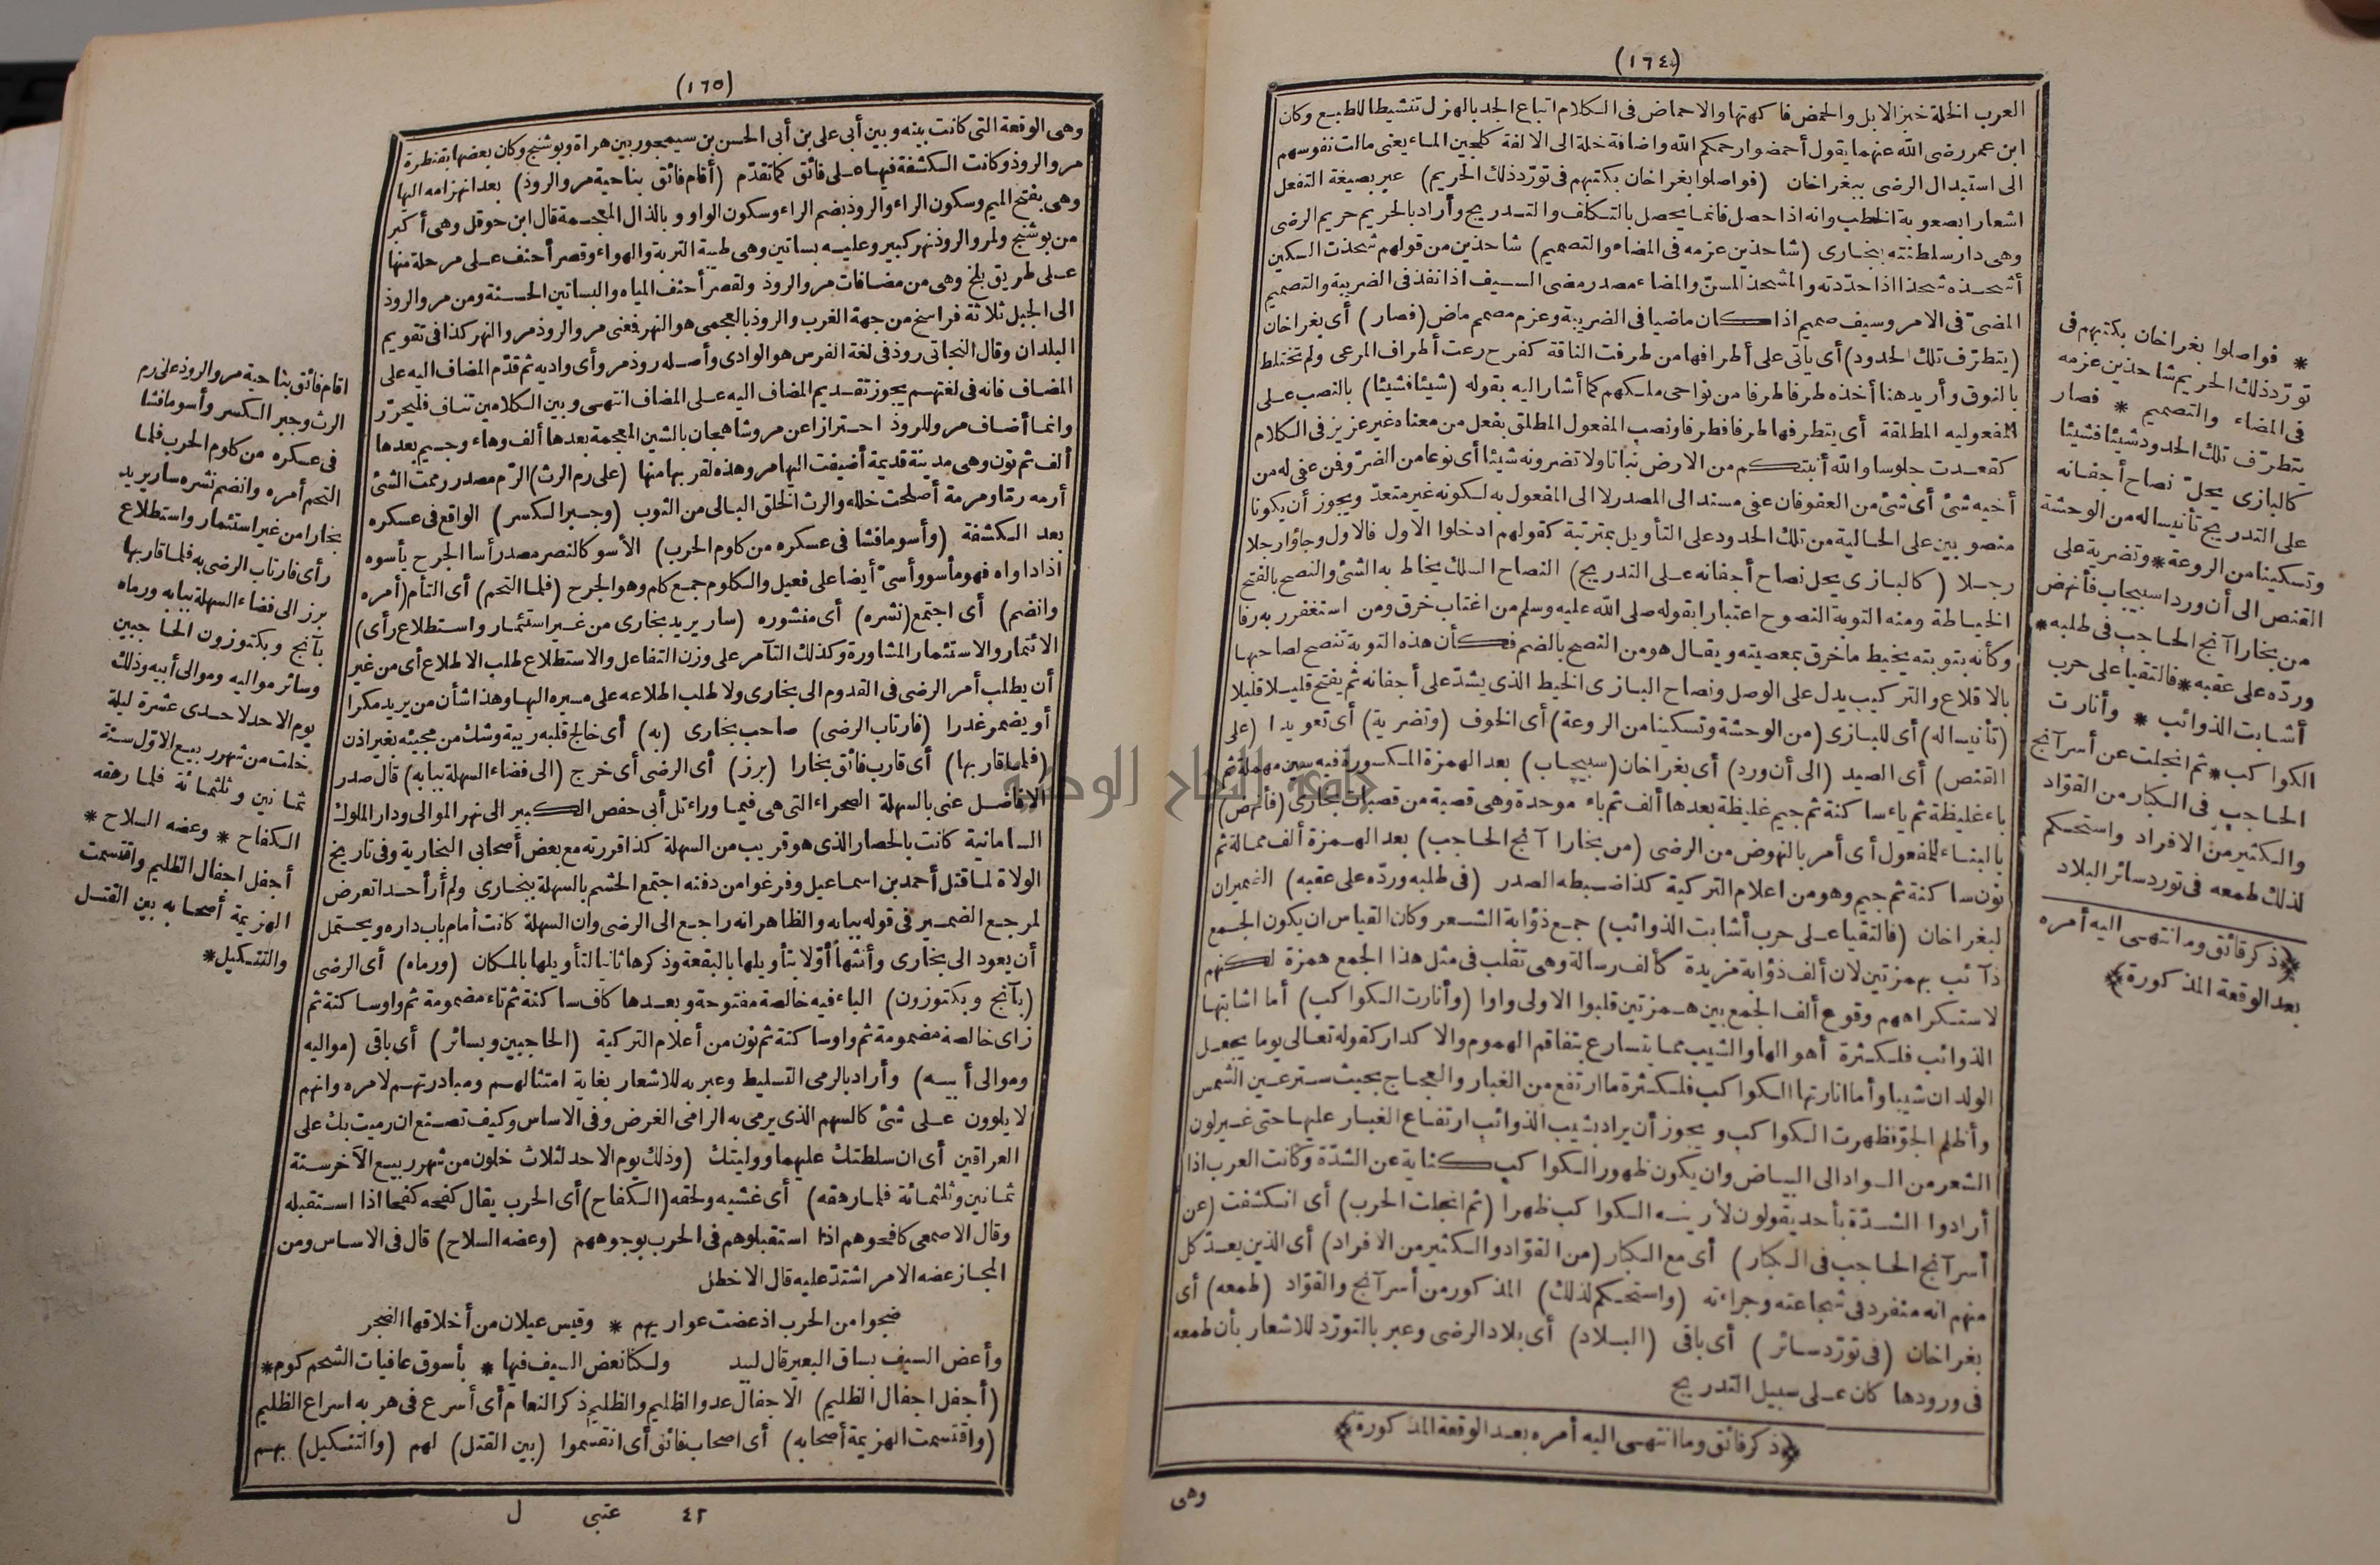 (١٦٤)
العرب الخلة خبز الابل والحمض فاكهتها والاحماض فى الكلام اتباع الجد بالهزل تنشيطا للطبع وكان
ابن عمر رضى الله عنهما يقول أحمضوا رحمكم الله واضافة خلة الى الالفة كلجين الماء يعنى مالت نفوسهم
الى استبدال الرضى ببغراخان (فواصلوا بغراخان بكتبهم فى تورّد ذلك الحريم) عبر بصيغة التفعل
اشعارا بصعوبة الخطب وانه اذا حصل فانما يحصل بالتكلف والتدريج وأراد بالحريم حريم الرضى
وهى دار سلطنته بخارى (شاحذين عزمه فى المضاء والتصميم) شاحذين من قولهم شحذت السكين
أشحذه شحذا اذا حدّدته والمشحذ المسنّ والمضاء مصدر مضى السيف اذا نفذ فى الضريبة والتصميم
المضىّ فى الامر وسيف صميم اذا كان ماضيا فى الضريبة وعزم مصمم ماض (فصار) أى بغراخان
(يتطرّف تلك الحدود) أى يأتى على أطرافها من طرفت الناقة كفرح رعت أطراف المرعى ولم تختلط
بالنوق وأريد هنا أخذه طرفا طرفا من نواحى ملكهم كما أشار اليه بقوله (شيئا فشيئا) بالنصب على
المفعولية المطلقة أى يتطرفها طرفا فطرفا ونصب المفعول المطلق بفعل من معناه غير عزيز فى الكلام
كقعدت جلوسا والله أنبتكم من الارض نباتا ولا تضرونه شيئا أى نوعا من الضرّ وفمن عفى له من
أخيه شئ أى شئ من العفو فان عفى مسند الى المصدر لا الى المفعول به لكونه غير متعدّ ويجوز أن يكونا
منصوبين على الحالية من تلك الحدود على التأويل بمترتبة كقولهم ادخلوا الاول فالاول وجاؤا رجلا
رجلا (كالبازى يحل نصاح أجفانه على التدريج) النصاح السلك يخاط به الشئ والنصح بالفتح
الخياطة ومنه التوبة النصوح اعتبارا بقوله صلى الله عليه وسلم من اغتاب خرق ومن استغفر به رفا
وكأنه بتوبته يخيط ما خرق بمعصيته ويقال هو من النصح بالضم فكأن هذه التوبة تنصح لصاحبها
بالاقلاع والتركيب يدل على الوصل ونصاح البازى الخيط الذى يشدّ على أجفانه ثم يفتح قليلا قليلا
(تأنيسا له) أى للبازى (من الوحشة وتسكينا من الروعة) أى الخوف (وتضرية) أى تعويدا (على
القنص) أى الصيد (الى أن ورد) أى بغراخان (سبيجاب) بعد الهمزة المكسورة فيه سين مهملة ثم
باء غليظة ثم ياء ساكنة ثم جيم غليظة بعدها ألف ثم باء موحدة وهى قصبة من قصبات بخارى (فأنهض)
بالبناء للمفعول أى أمر بالنهوض من الرضى (من بخارا آنج الحاجب) بعد الهمزة ألف ممالة ثم
نون ساكنة ثم جيم وهو من اعلام التركية كذا ضبطه الصدر (فى طلبه وردّه على عقبه) الضميران
لبغراخان (فالتقيا على حرب أشابت الذوائب) جمع ذؤابة الشعر وكان القياس ان يكون الجمع
ذآئب بهمزتين لان ألف ذؤابة مزيدة كألف رسالة وهى تقلب فى مثل هذا الجمع همزة لكنهم
لاستكراههم وقوع ألف الجمع بين همزتين قلبوا الاولى واوا (وأنارت الكواكب) أما اشابتها
الذوائب فلكثرة أهوالها والشيب مما يتسارع بتفاقم الهموم والاكدار كقوله تعالى يوما يجعل
الولدان شيبا وأما انارتها الكواكب فلكثرة ما ارتفع من الغبار والعجاج بحيث ستر عين الشمس
وأظلم الجوّ فظهرت الكواكب ويجوز أن يراد بشيب الذوائب ارتفاع الغبار عليها حتى غير لون
الشعر من السواد الى البياض وان يكون ظهور الكواكب كناية عن الشدّة وكانت العرب اذا
أرادوا الشدّة بأحد يقولون لأرينه الكواكب ظهرا (ثم انجلت الحرب) أى انكشفت (عن
أسر آنج الحاجب فى الكبار) أى مع الكبار (من القوّاد والكثير من الافراد) أى الذين يعدّ كل
منهم انه منفرد فى شجاعته وجراءته (واستحكم لذلك) المذكور من أسر آنج والقوّاد (طمعه) أى
بغراخان (فى تورّد سائر) أى باقى (البلاد) أى بلاد الرضى وعبر بالتورّد للاشعار بأن طمعه
فى ورودها كان على سبيل التدريج
﴿ذكر فائق وما انتهى اليه أمره بعد الوقعة المذكورة﴾
وهى
* فواصلوا بغراخان بكتبهم فى
تورّد ذلك الحريم شاحذين عزمه
فى المضاء والتصميم * فصار
يتطرّف تلك الحدود شيئا فشيئا
كالبازى يحلّ نصاح أجفانه
على التدريج تأنيسا له من الوحشة
وتسكينا من الروعة * وتضرية على
القنص الى أن ورد اسبيجاب فأنهض
من بخارا آنج الحاجب فى طلبه *
وردّه على عقبه * فالتقيا على حرب
أشابت الذوائب * وأنارت
الكواكب * ثم انجلت عن أسر آنج
الحاجب فى الكبار من القوّاد
والكثير من الافراد واستحكم
لذلك طمعه فى تورد سائر البلاد
﴿ذكر فائق وما انتهى اليه أمره
بعد الوقعة المذكورة﴾
(١٦٥)
وهى الوقعة التى كانت بينه وبين أبى على بن أبى الحسن بن سيمجور بين هراة وبوشنج وكان بعضها بقنطرة
مرو الروذ وكانت الكشفة فيها على فائق كما تقدّم (أقام فائق بناحية مرو الروذ) بعد انهزامه اليها
وهى بفتح الميم وسكون الراء والروذ بضم الراء وسكون الواو وبالذال المعجمة قال ابن حوقل وهى أكبر
من بوشنج ولمرو الروذ نهر كبير وعليه بساتين وهى طيبة التربة والهواء وقصر أحنف على مرحلة منها
على طريق بلخ وهى من مضافات مرو الروذ ولقصر أحنف المياه والبساتين الحسنة ومن مرو الروذ
الى الجبل ثلاثة فراسخ من جهة الغرب والروذ بالعجمى هو النهر فمعنى مرو الروذ مرو النهر كذا فى تقويم
البلدان وقال النجاتى روذ فى لغة الفرس هو الوادى وأصله روذ مرو أى واديه ثم قدّم المضاف اليه على
المضاف فانه فى لغتهم يجوز تقديم المضاف اليه على المضاف انتهى وبين الكلامين تناف فليحرّر
وانما أضاف مرو للروذ احترازا عن مرو شاهجان بالشين المعجمة بعدها ألف وهاء وجيم بعدها
ألف ثم نون وهى مدينة قديمة أضيفت اليها مرو وهذه لقربها منها (على رم الرث) الرّم مصدر رممت الشئ
أرمه رمّا ومرمة أصلحت خلله والرث الخلق البالى من الثوب (وجبر الكسر) الواقع فى عسكره
بعد الكشفة (وأسو ما فشا فى عسكره من كلوم الحرب) الأسو كالنصر مصدر أسا الجرح يأسوه
اذا داواه فهو مأسو وأسىّ أيضا على فعيل والكلوم جمع كلم وهو الجرح (فلما التحم) أى التأم (أمره
وانضم) أى اجتمع (نشره) أى منشوره (سار يريد بخارى من غير استئمار واستطلاع رأى)
الائتمار والاستئمار المشاورة وكذلك التآمر على وزن التفاعل والاستطلاع طلب الاطلاع أى من غير
أن يطلب أمر الرضى فى القدوم الى بخارى ولا طلب اطلاعه على مسيره اليها وهذا شأن من يريد مكرا
أو يضمر غدرا (فارتاب الرضى) صاحب بخارى (به) أى خالج قلبه ريبة وشك من مجيئه بغير اذن
(فلما قاربها) أى قارب فائق بخارا (برز) أى الرضى أى خرج (الى فضاء السهلة ببابه) قال صدر
الافاضل عنى بالسهلة الصحراء التى هى فيما وراء تل أبى حفص الكبير الى نهر الموالى ودار الملوك
السامانية كانت بالحصار الذى هو قريب من السهلة كذا قررته مع بعض أصحابى البخارية وفى تاريخ
الولاة لما قتل أحمد بن اسماعيل وفرغوا من دفنه اجتمع الحشم بالسهلة ببخارى ولم أر أحدا تعرض
لمرجع الضمير فى قوله ببابه والظاهر انه راجع الى الرضى وان السهلة كانت أمام باب داره ويحتمل
أن يعود الى بخارى وأنثها أوّلا بتأويلها بالبقعة وذكرها ثانيا لتأويلها بالمكان (ورماه) أى الرضى
(بآنج وبكتوزون) الباء فيه خالصة مفتوحة وبعدها كاف ساكنة ثم تاء مضمومة ثم واو ساكنة ثم
زاى خالصة مضمومة ثم واو ساكنة ثم نون من أعلام التركية (الحاجبين وبسائر) أى باقى (مواليه
وموالى أبيه) وأراد بالرمى التسليط وعبر به للاشعار بغاية امتثالهم ومبادرتهم لامره وانهم
لا يلوون على شئ كالسهم الذى يرمى به الرامى الغرض وفى الاساس وكيف تصنع ان رميت بك على
العراقين أى ان سلطتك عليهما ووليتك (وذلك يوم الاحد لثلاث خلون من شهر ربيع الآخر سنة
ثمانين وثلثمائة فلما رهقه) أى غشيه ولحقه (الكفاح) أى الحرب يقال كفحه كفحا اذا استقبله
وقال الاصمعى كافحوهم اذا استقبلوهم فى الحرب بوجوههم (وعضه السلاح) قال فى الاساس ومن
المجاز عضه الامر اشتدّ عليه قال الاخطل
ضجوا من الحرب اذ عضت غواربهم * وقيس عيلان من أخلاقها الضجر
وأعض السيف بساق البعير قال لبيد ولكنا نعض السيف فيها * بأسوق عافيات الشحم كوم *
(أجفل اجفال الظليم) الاجفال عدو الظليم والظليم ذكر النعام أى أسرع فى هربه اسراع الظليم
(واقتسمت الهزيمة أصحابه) أى اصحاب فائق أى انقسموا (بين القتل) لهم (والتنكيل) بهم
٤٢ عتبى ل
اقام فائق بناحية مرو الروذ على رم
الرث وجبر الكسر وأسو ما فشا
فى عسكره من كلوم الحرب فلما
التحم أمره وانضم نشره سار يريد
بخارا من غير استئمار واستطلاع
رأى فارتاب الرضى به فلما قاربها
برز الى فضاء السهلة ببابه ورماه
بآنج وبكتوزون الحاجبين
وسائر مواليه وموالى أبيه وذلك
يوم الاحد لاحدى عشرة ليلة
خلت من شهر ربيع الاوّل سنة
ثمانين وثلثمائة فلما رهقه
الكفاح * وعضه السلاح *
أجفل اجفال الظليم واقتسمت
الهزيمة أصحابه بين القتل
والتنكيل *
جامعة النجاح الوطنية